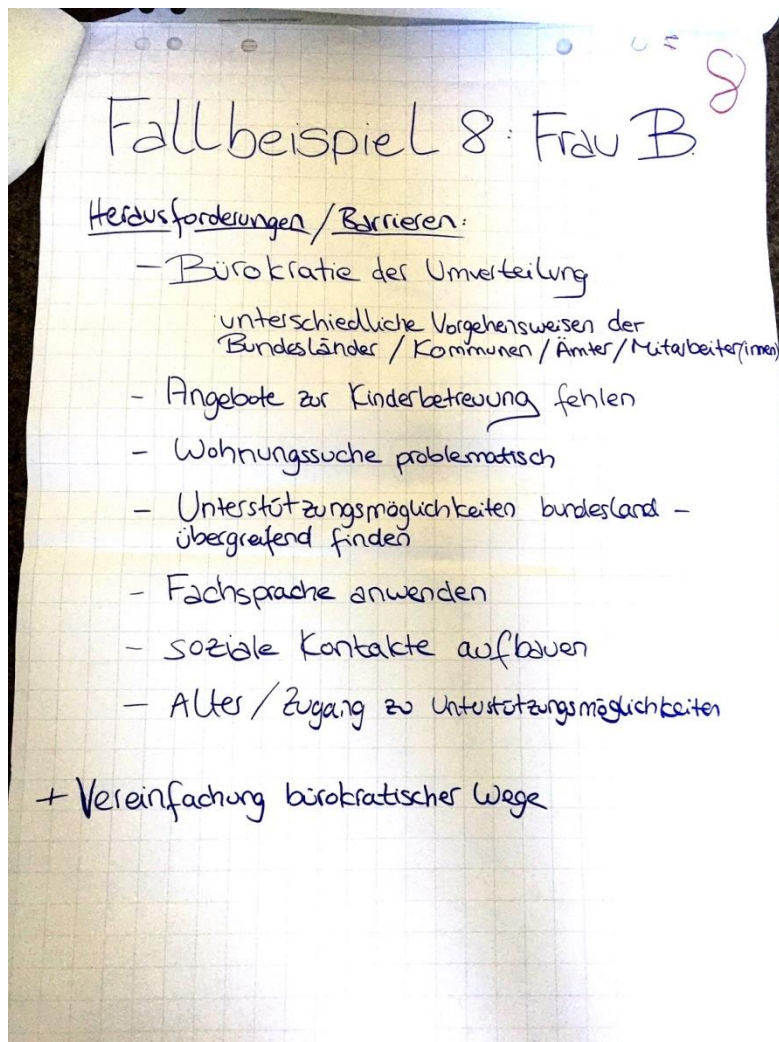 8
Fallbeispiel 8: Frau B.
Herausforderungen / Barrieren:
- Bürokratie der Umverteilung
unterschiedliche Vorgehensweisen der
Bundesländer / Kommunen / Ämter / Mitarbeiter(innen)
- Angebote zur Kinderbetreuung fehlen
- Wohnungssuche problematisch
- Unterstützungsmöglichkeiten bundesland-
übergreifend finden
- Fachsprache anwenden
- soziale Kontakte aufbauen
- Alter / Zugang zu Unterstützungsmöglichkeiten
+ Vereinfachung bürokratischer Wege